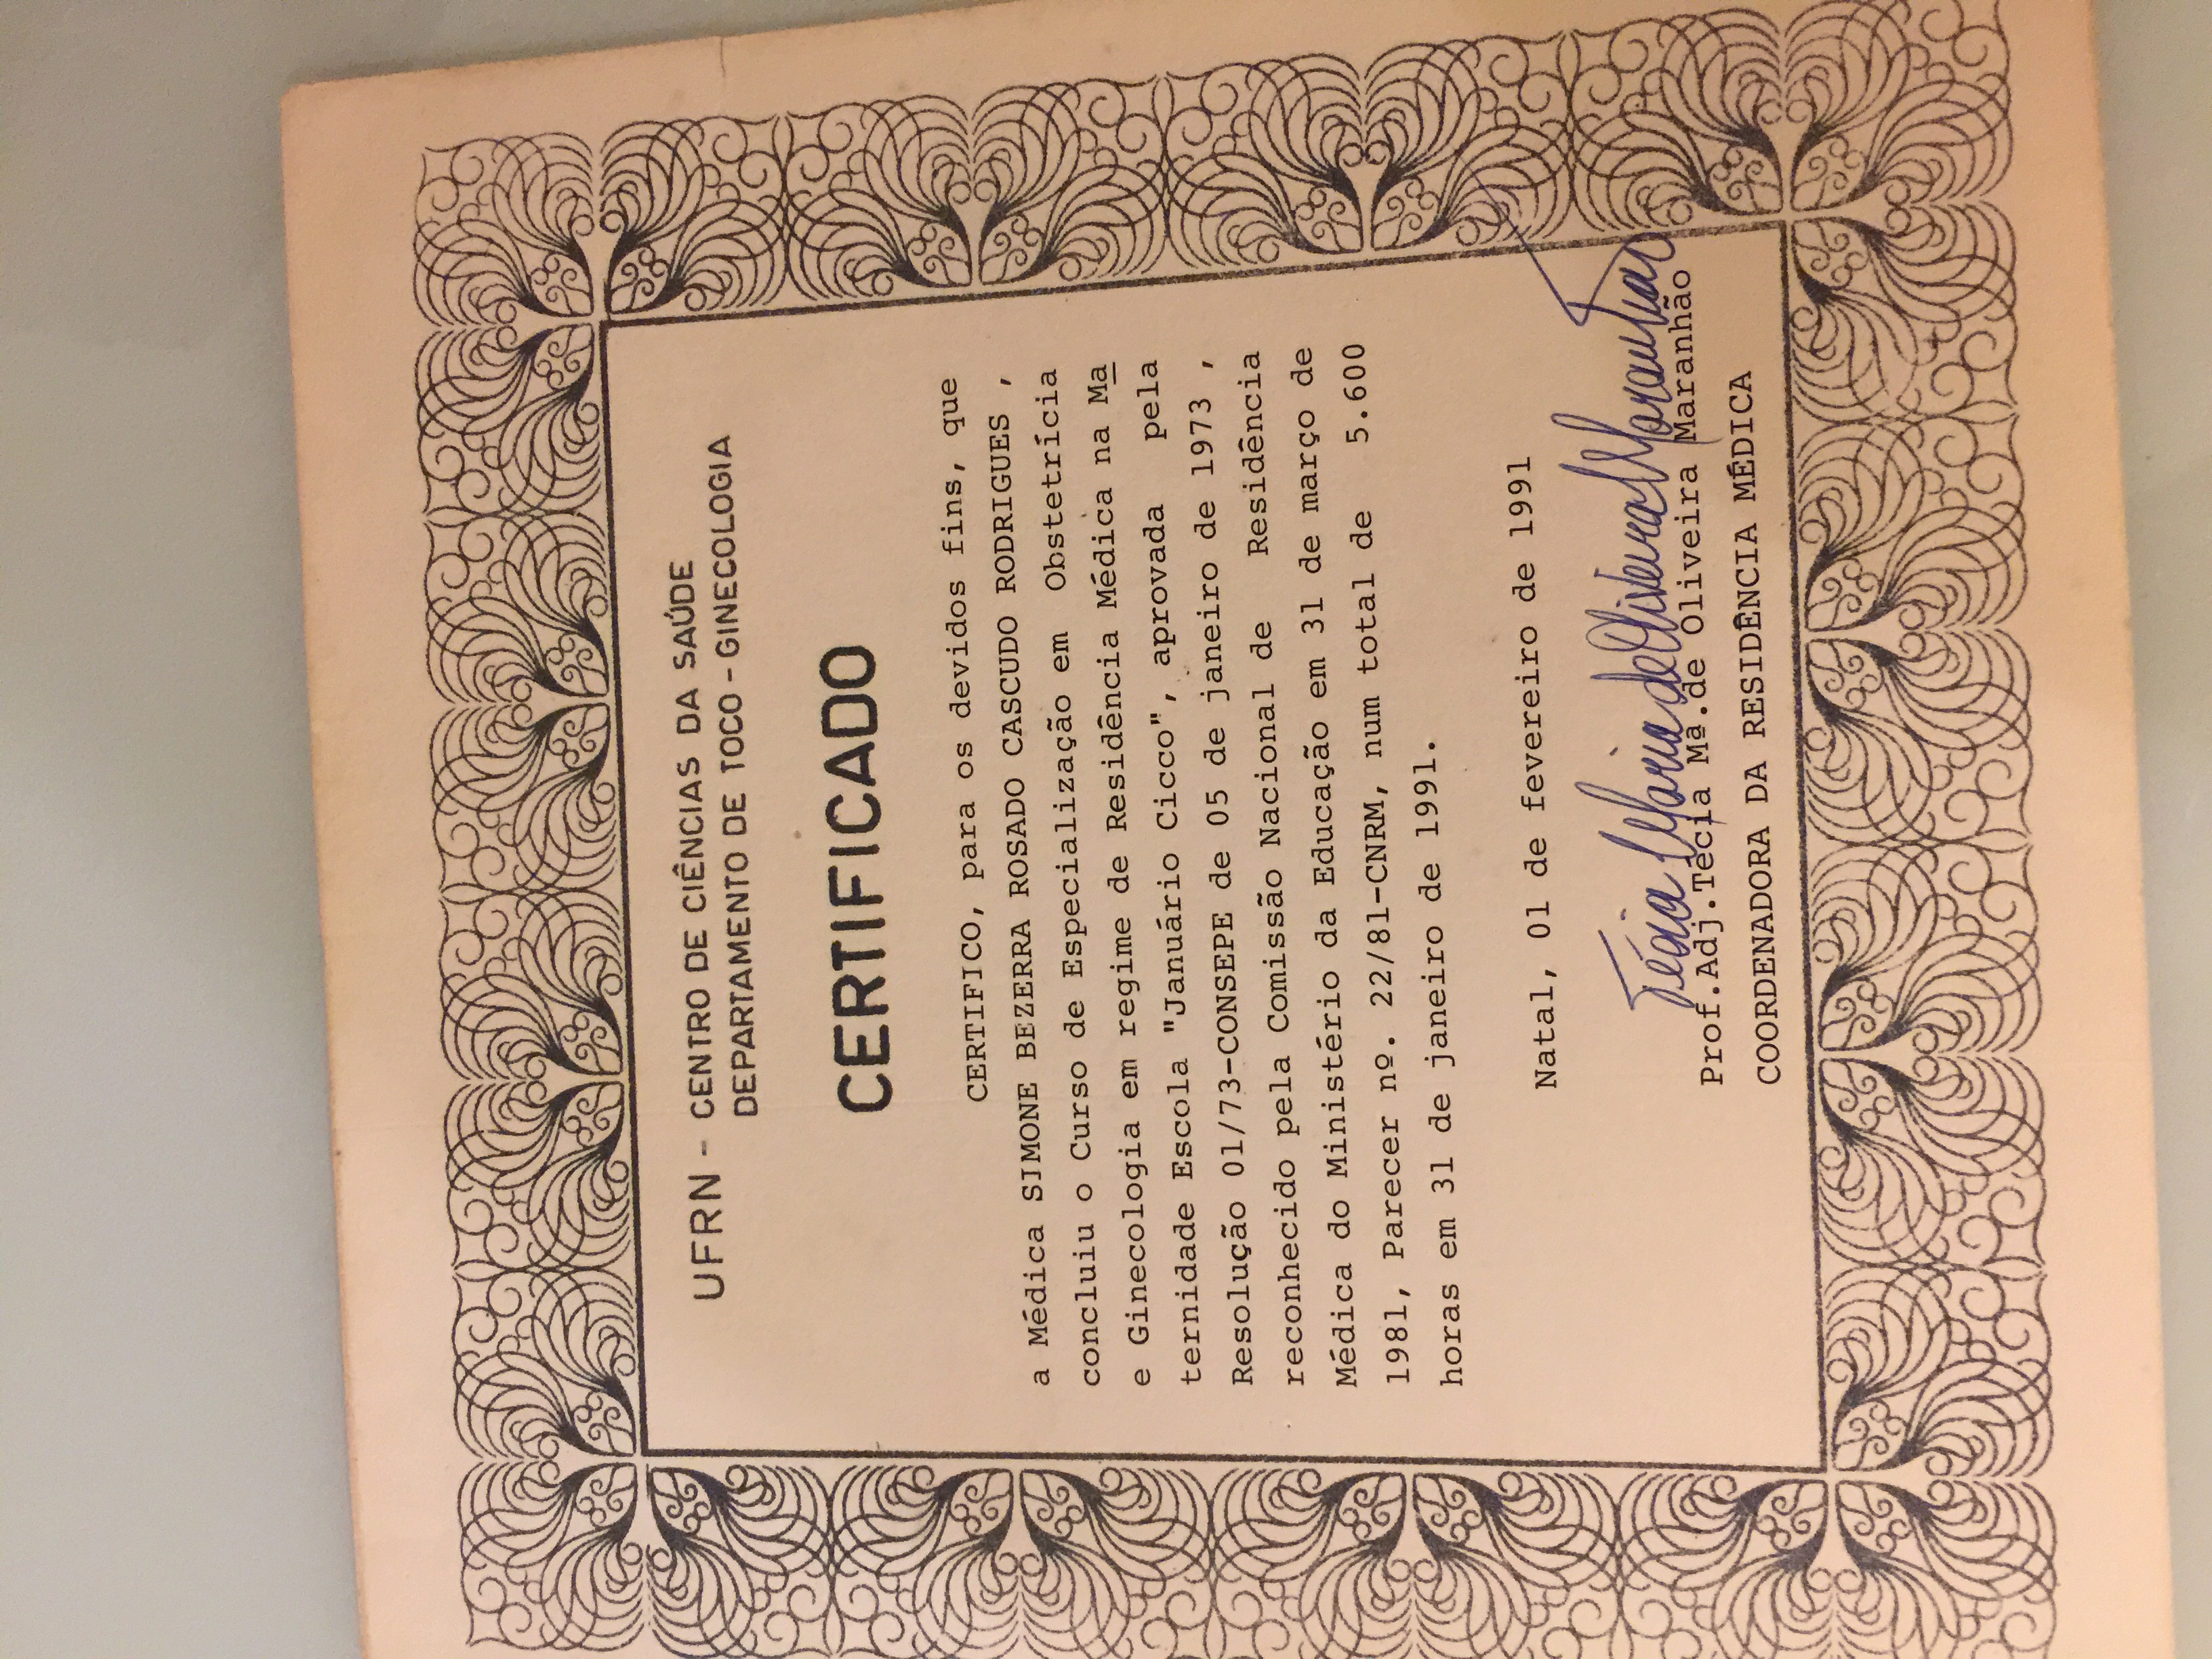 UFRN - CENTRO DE CIÊNCIAS DA SAÚDE
DEPARTAMENTO DE TOCO - GINECOLOGIA
CERTIFICADO
CERTIFICO, para os devidos fins, que
a Médica SIMONE BEZERRA ROSADO CASCUDO RODRIGUES ,
concluiu o Curso de Especialização em Obstetrícia
e Ginecologia em regime de Residência Médica na Ma
ternidade Escola "Januário Cicco", aprovada pela
Resolução 01/73-CONSEPE de 05 de janeiro de 1973 ,
reconhecido pela Comissão Nacional de Residência
Médica do Ministério da Educação em 31 de março de
1981, Parecer nº. 22/81-CNRM, num total de 5.600
horas em 31 de janeiro de 1991.
Natal, 01 de fevereiro de 1991
Técia Maria de Oliveira Maranhão
Prof.Adj.Técia Mª.de Oliveira Maranhão
COORDENADORA DA RESIDÊNCIA MÉDICA